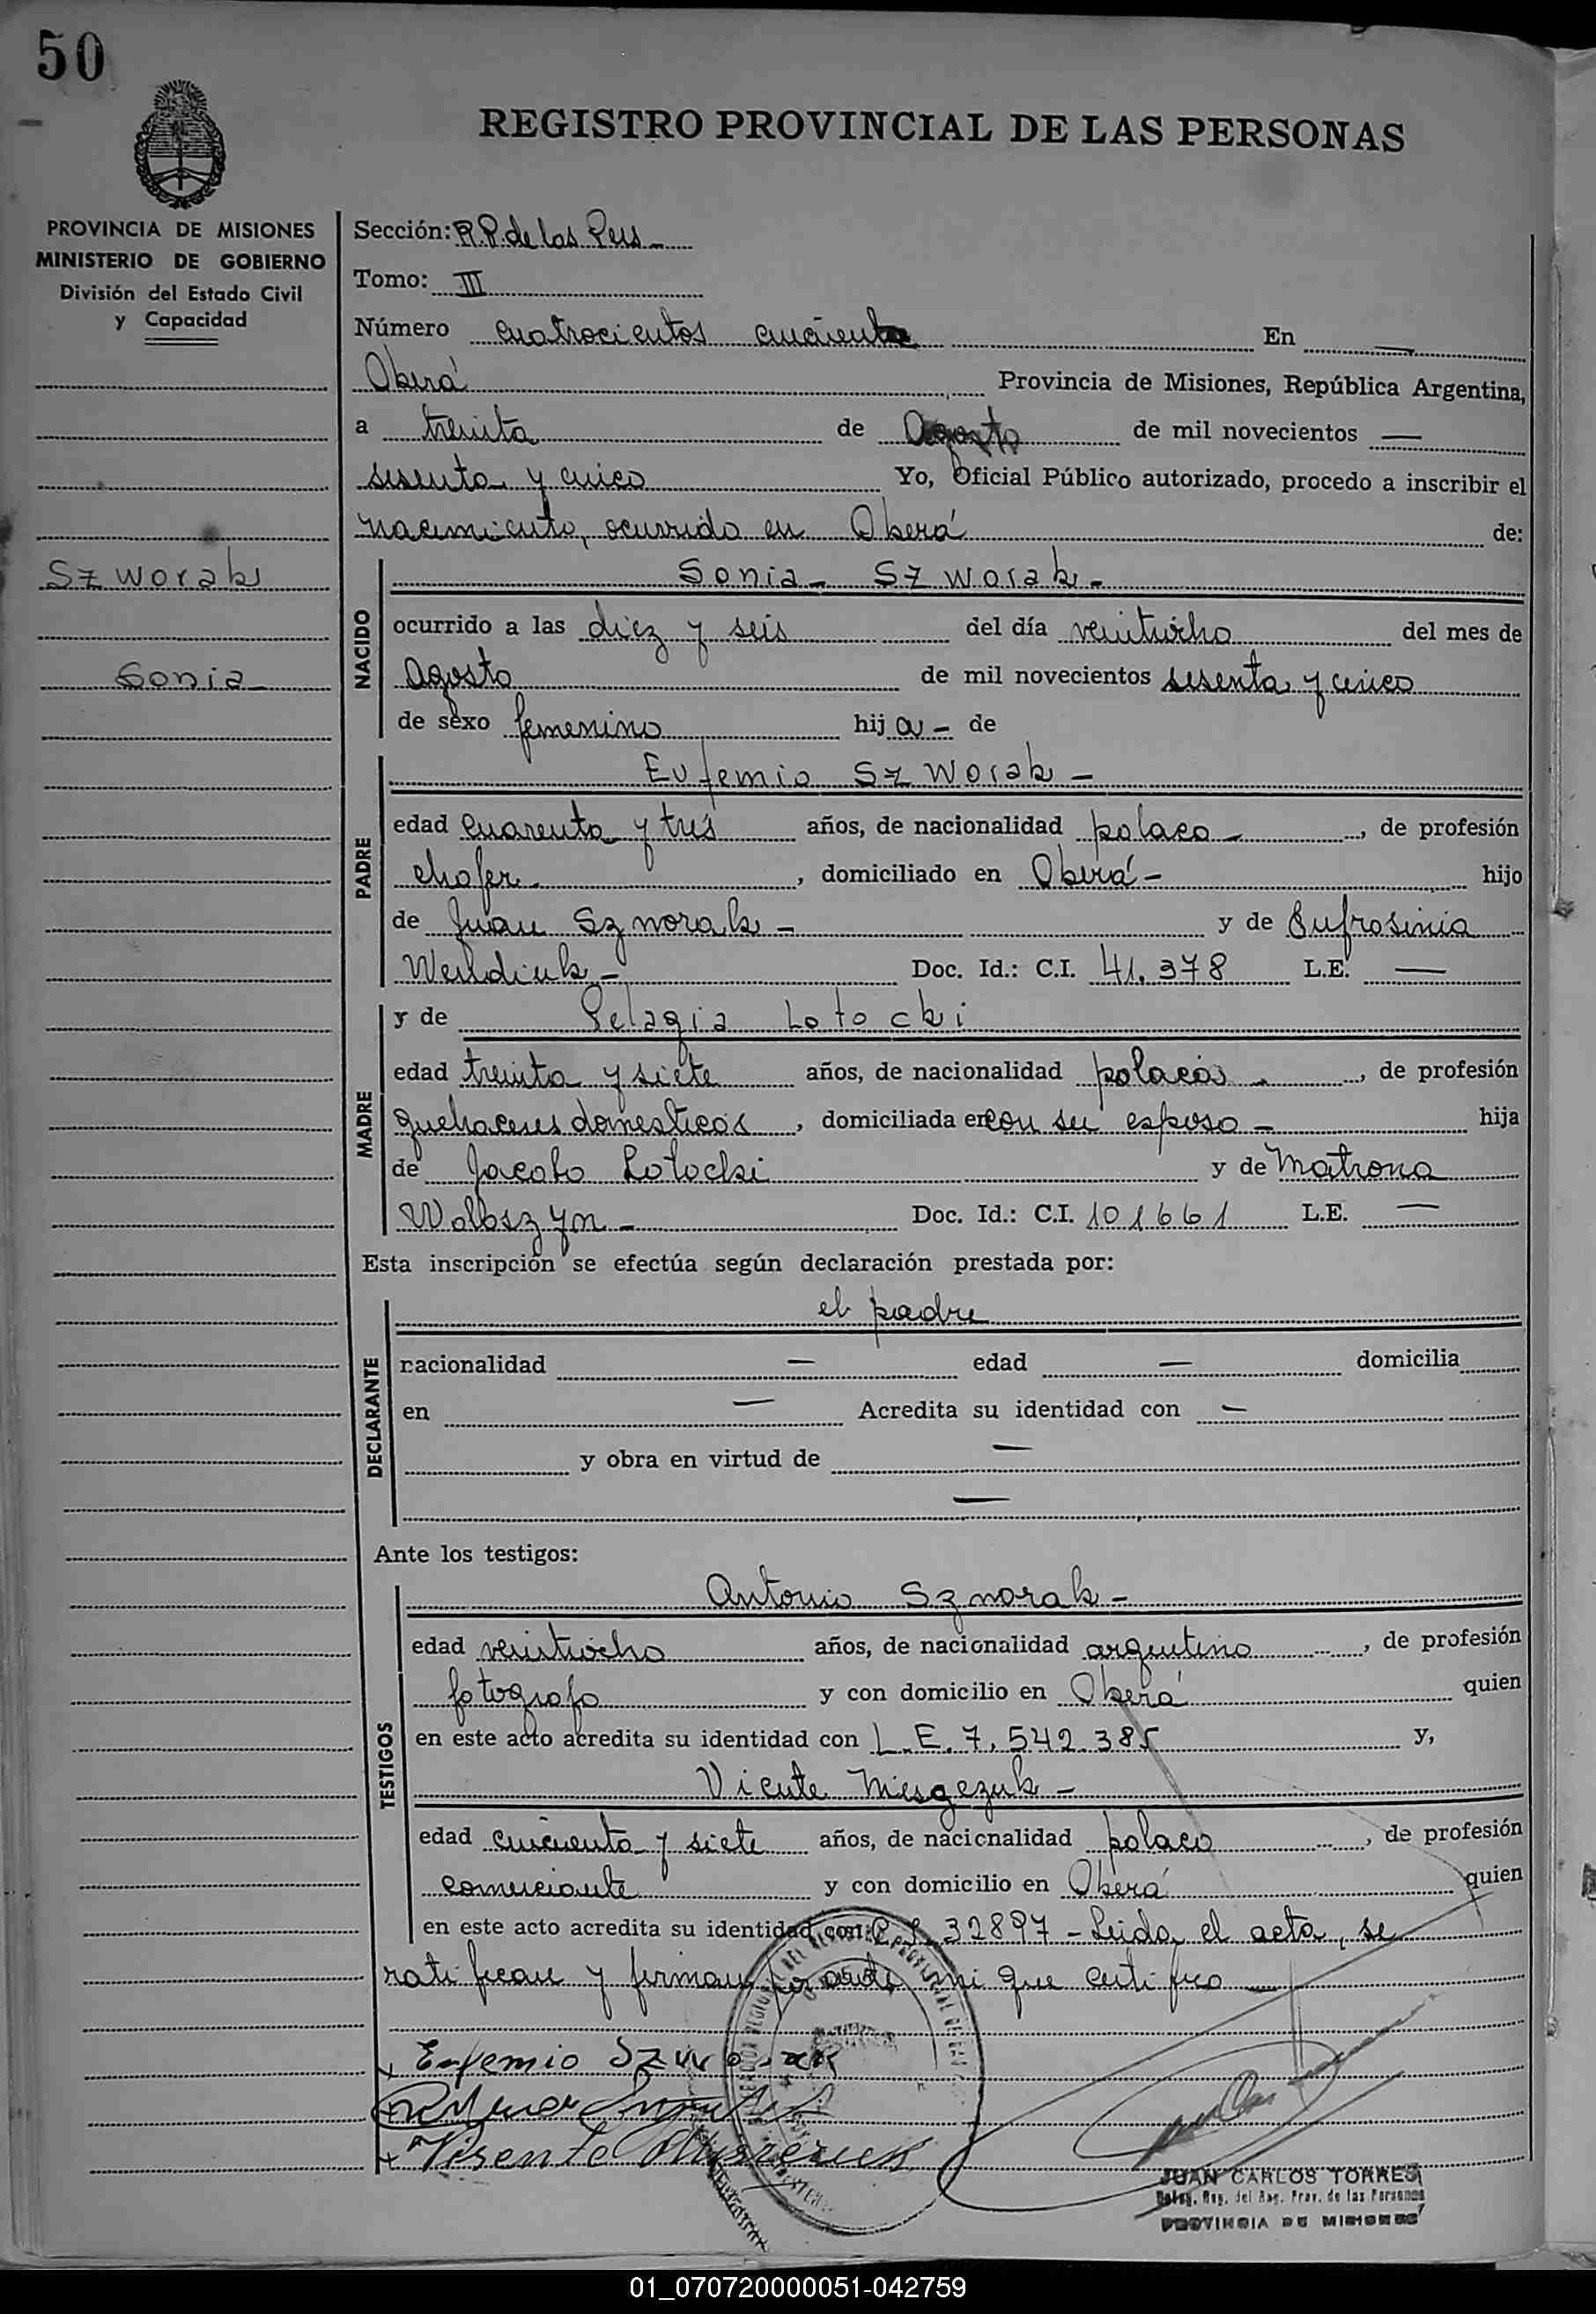 50
REGISTRO PROVINCIAL DE LAS PERSONAS
PROVINCIA DE MISIONES
MINISTERIO DE GOBIERNO
División del Estado Civil
y Capacidad
Szworak
Sonia
Sección: R.P. de las Pers
Tomo: III
Número cuatrocientos cincuenta En —
Oberá Provincia de Misiones, República Argentina,
a treinta de Agosto de mil novecientos —
sesenta y cinco Yo, Oficial Público autorizado, procedo a inscribir el
nacimiento, ocurrido en Oberá de:
NACIDO
Sonia - Szworak -
ocurrido a las diez y seis del día veintiocho del mes de
Agosto de mil novecientos sesenta y cinco
de sexo femenino hija - de
PADRE
Eufemio Szworak -
edad cuarenta y tres años, de nacionalidad polaca -, de profesión
chofer -, domiciliado en Oberá - hijo
de Juan Szworak - y de Eufrosinia
Doc. Id.: C.I. 41.378 L.E. —
MADRE
y de Pelagia Lotocki
edad treinta y siete años, de nacionalidad polaca -, de profesión
quehaceres domesticos, domiciliada en con su esposo - hija
de Jacobo Lotocki y de Matrona
Woloszyn - Doc. Id.: C.I. 101661 L.E. —
Esta inscripción se efectúa según declaración prestada por:
DECLARANTE
el padre
nacionalidad — edad — domicilia
en — Acredita su identidad con —
y obra en virtud de —
—
Ante los testigos:
TESTIGOS
Antonio Szworak -
edad veintiocho años, de nacionalidad argentino, de profesión
fotografo y con domicilio en Oberá quien
en este acto acredita su identidad con L.E. 7.542.385 y,
Vicente -
edad cincuenta y siete años, de nacionalidad polaco, de profesión
comerciante y con domicilio en Oberá quien
en este acto acredita su identidad con: 32897 - Leida el acta, se
ratifican y firman por ante mi que certifico
Eufemio Szworak
Visente
JUAN CARLOS TORRES
Deleg. Reg. del Reg. Prov. de las Personas
PROVINCIA DE MISIONES
01_070720000051-042759